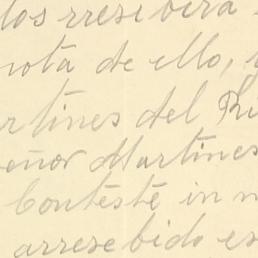 los rresebira
nota de ello, y
rtines del Ri
eñor Martines
Conteste in m
arresebido es